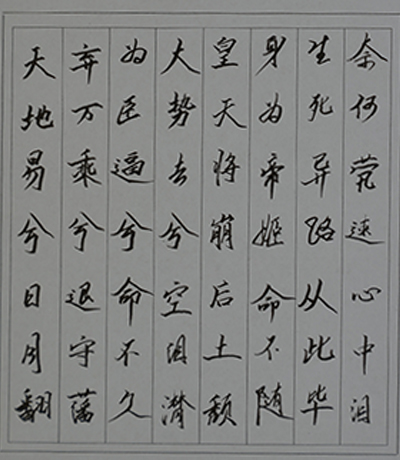 天地易兮日月翻
弃万乘兮退守藩
为臣逼兮命不久
大势去兮空泪潸
皇天将崩后土颓
身为帝姬命不随
生死异路从此毕
奈何茕速心中泪